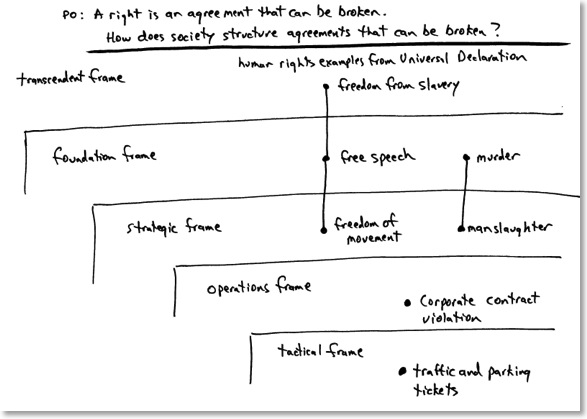 PO: A right is an agreement that can be broken.
How does society structure agreements that can be broken?
human rights examples from Universal Declaration
transcendent frame
freedom from slavery
foundation frame
free speech
murder
strategic frame
freedom of
movement
manslaughter
operations frame
Corporate contract
violation
tactical frame
traffic and parking
tickets